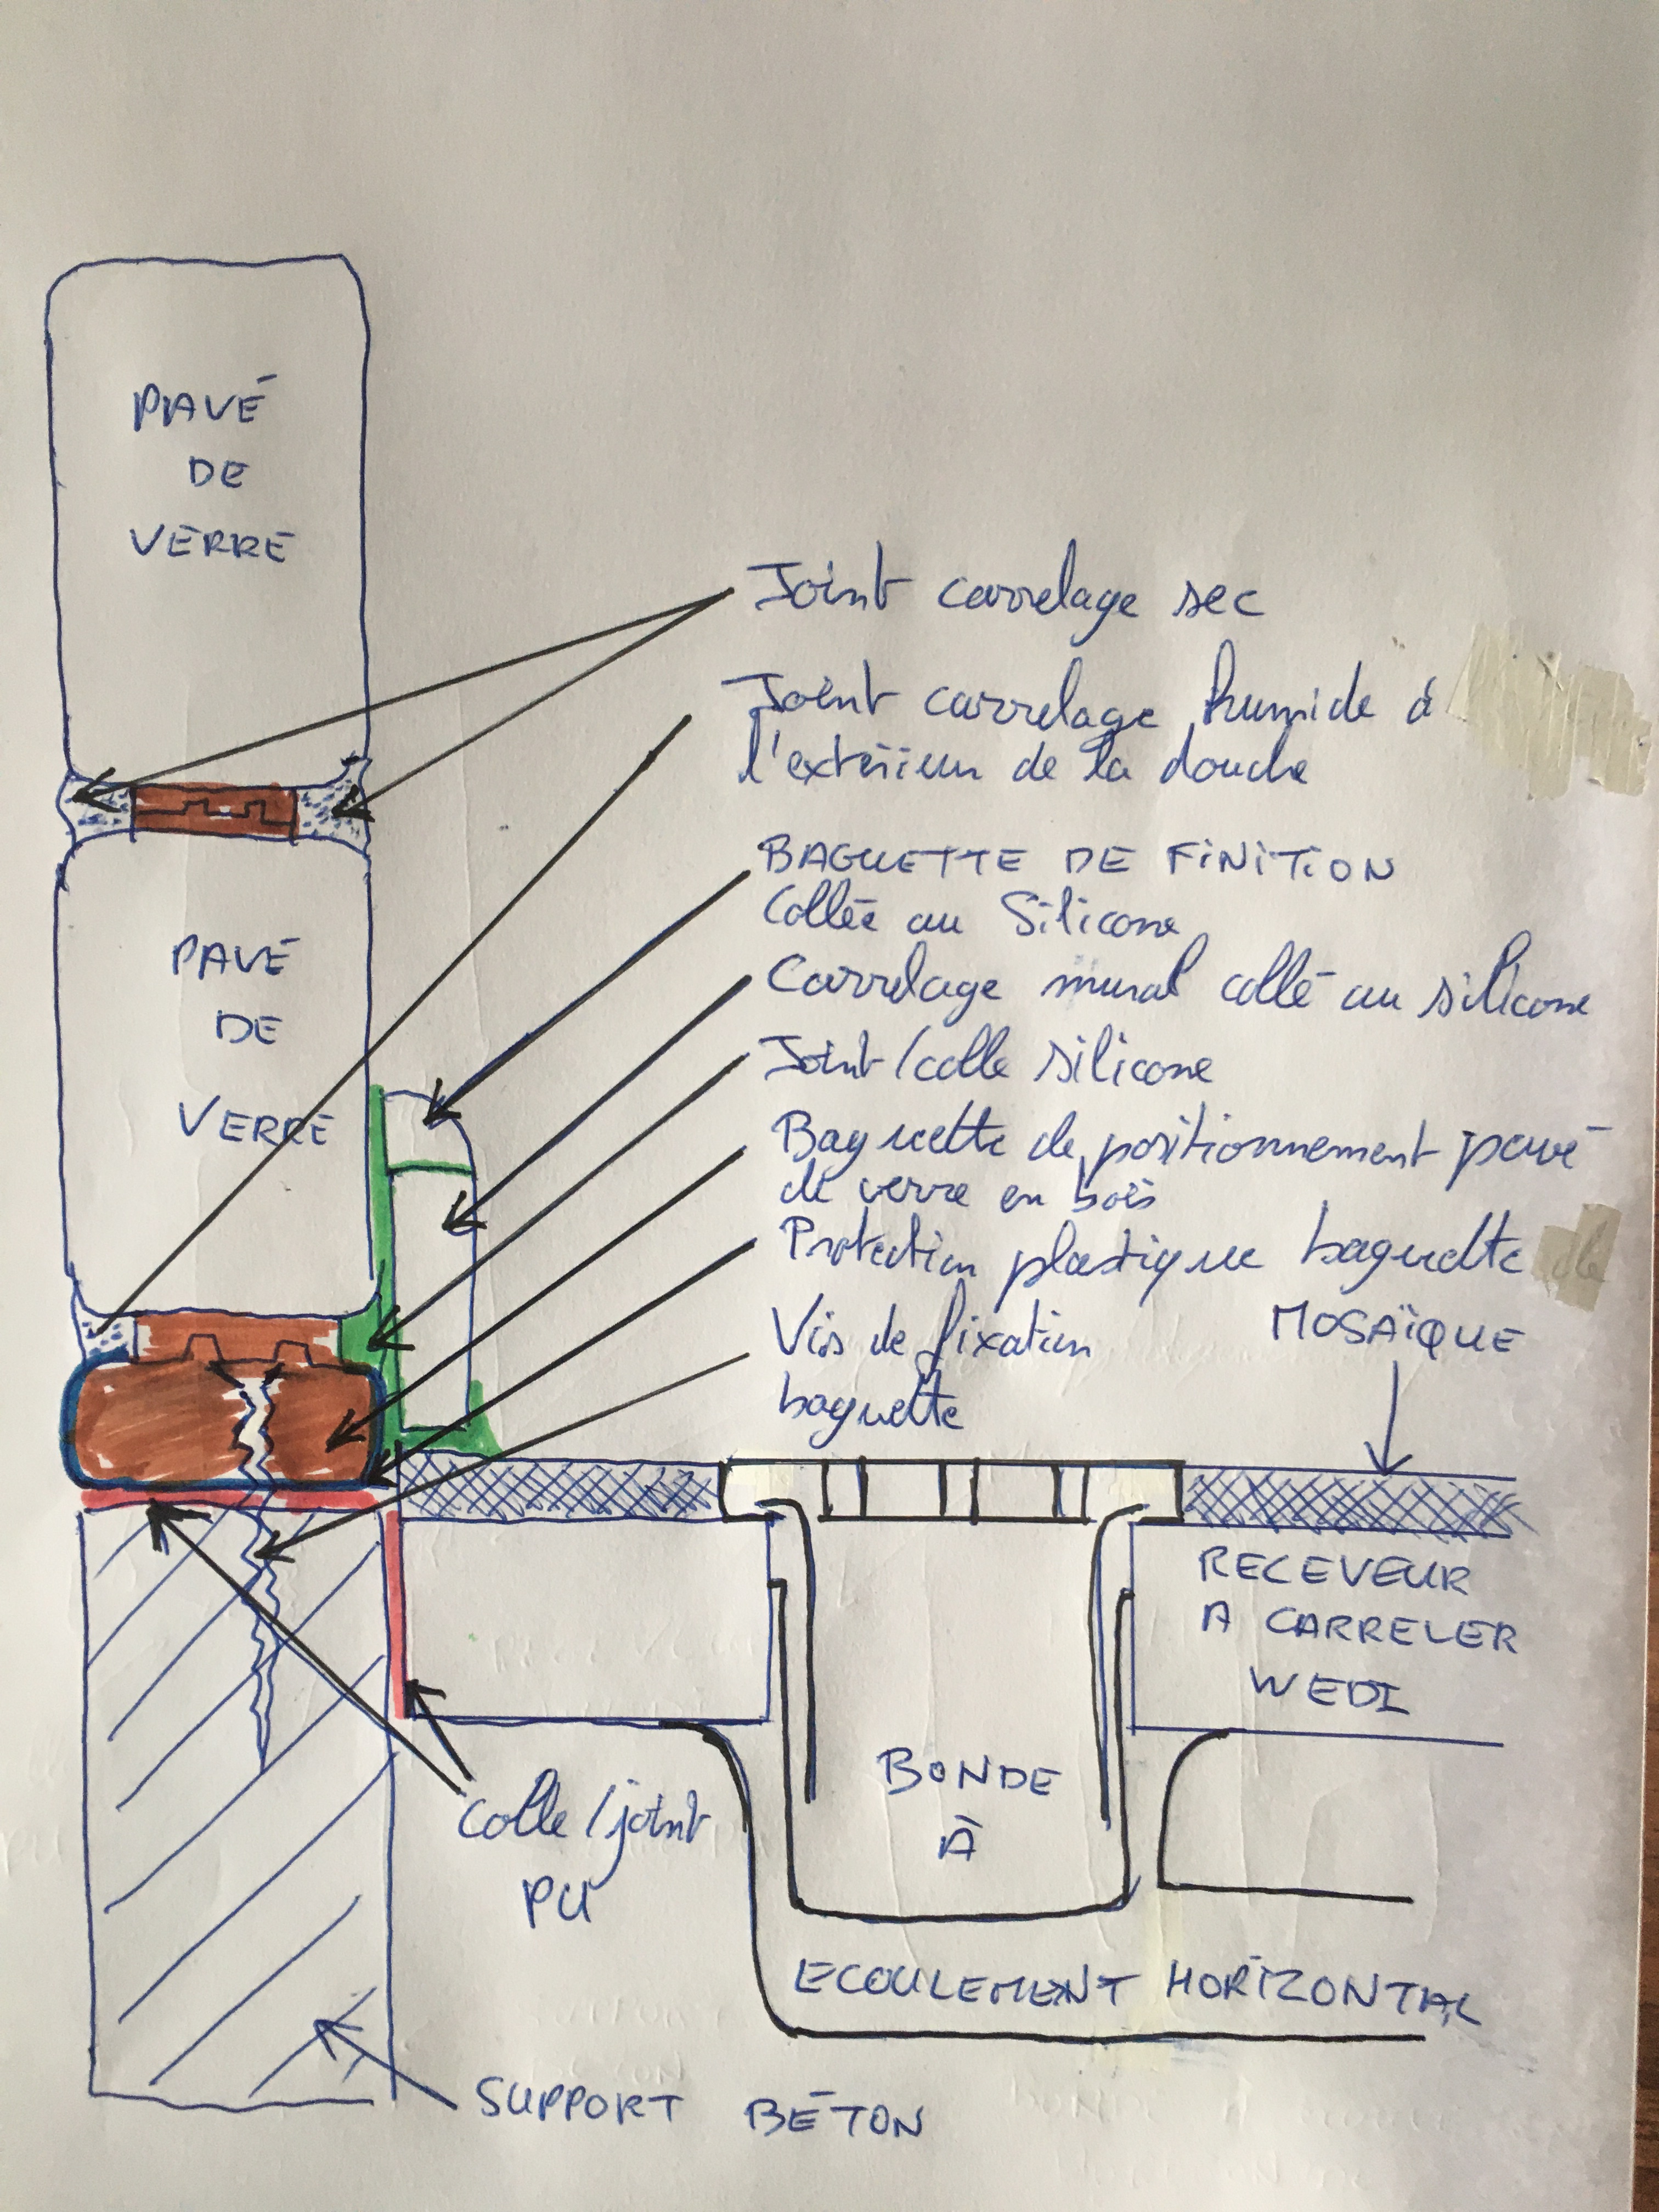 PAVÉ
DE
VERRE
Joint carrelage sec
Joint carrelage humide à
l'extérieur de la douche
BAGUETTE DE FINITION
Collée au Silicone
PAVÉ
DE
VERRE
Carrelage mural collé au silicone
Joint/colle silicone
Baguette de positionnement pavé
de verre en bois
Protection plastique baguette
Vis de fixation
baguette
MOSAÏQUE
RECEVEUR
A CARRELER
WEDI
BONDE
À
Colle/joint
PU
ECOULEMENT HORIZONTAL
SUPPORT BÉTON